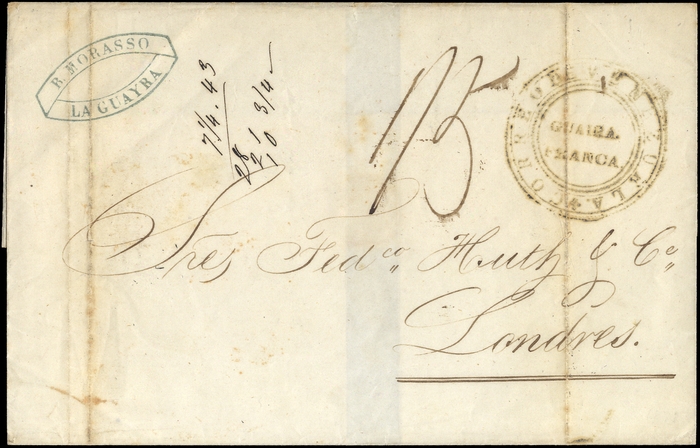 B. MORASSO
LA GUAYRA
CORREO DE VENEZUELA
GUAIRA.
FRANCA.
Sres Fedco. Huth & Ca.
Londres.